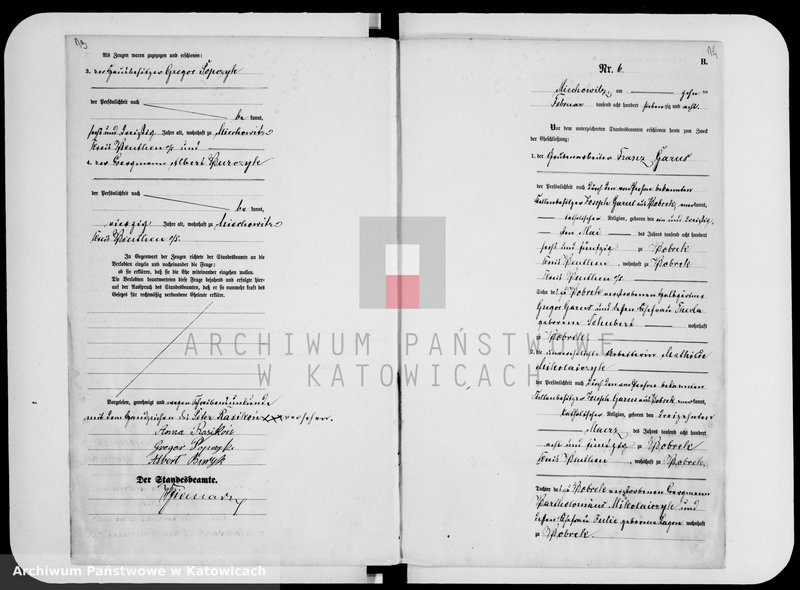 13
Als Zeugen waren zugezogen und erschienen:
3. der Hausbesitzer Gregor Popczyk
der Persönlichkeit nach
be kannt,
sechs und dreißig Jahre alt, wohnhaft zu Miechowitz
Kreis Beuthen o/s und
4. der Bergmann Albert
der Persönlichkeit nach
be kannt,
vierzig Jahre alt, wohnhaft zu Miechowitz
Kreis Beuthen o/s.
In Gegenwart der Zeugen richtete der Standesbeamte an die
Verlobten einzeln und nacheinander die Frage:
ob sie erklären, daß sie die Ehe miteinander eingehen wollen.
Die Verlobten beantworteten diese Frage bejahend und erfolgte hier-
auf der Ausspruch des Standesbeamten, daß er sie nunmehr kraft des
Gesetzes für rechtmäßig verbundene Eheleute erkläre.
Vorgelesen, genehmigt und wegen Schreibensunkunde
mit dem Handzeichen des Peter Rasikoń xxx versehen.
Anna Rasikoń
Gregor Popczyk
Albert
Der Standesbeamte.
14
B.
Nr. 6.
Miechowitz, am zehn ten
Februar tausend acht hundert sieben zig und acht.
Vor dem unterzeichneten Standesbeamten erschienen heute zum Zweck
der Eheschließung:
1. der Grubenarbeiter Franz Garus
der Persönlichkeit nach durch den von Person bekannten
Stellenbesitzer Joseph Garus aus Bobrek, anerkannt,
katholischer Religion, geboren den ein und dreißig
sten Mai des Jahres tausend acht hundert
sechs und fünfzig zu Bobrek
Kreis Beuthen, wohnhaft zu Bobrek
Kreis Beuthen o/s.
Sohn des zu Bobrek verstorbenen
Gregor Garus und dessen Ehefrau
geborene Schubert wohnhaft
zu Bobrek.
2. die unverehelichte Arbeiterin Mathilde
Mikolaiczyk
der Persönlichkeit nach durch den von Person bekannten
Stellenbesitzer Joseph Garus aus Bobrek anerkannt,
katholischer Religion, geboren den dreizehnten
Maerz des Jahres tausend acht hundert
acht und fünfzig zu Bobrek
Kreis Beuthen, wohnhaft zu Bobrek,
Tochter des zu Bobrek verstorbenen Bergmann
Bartholomäus Mikolaiczyk und
dessen Ehefrau Julie geborene wohnhaft
zu Bobrek.
ARCHIWUM PAŃSTWOWE
W KATOWICACH
Archiwum Państwowe w Katowicach